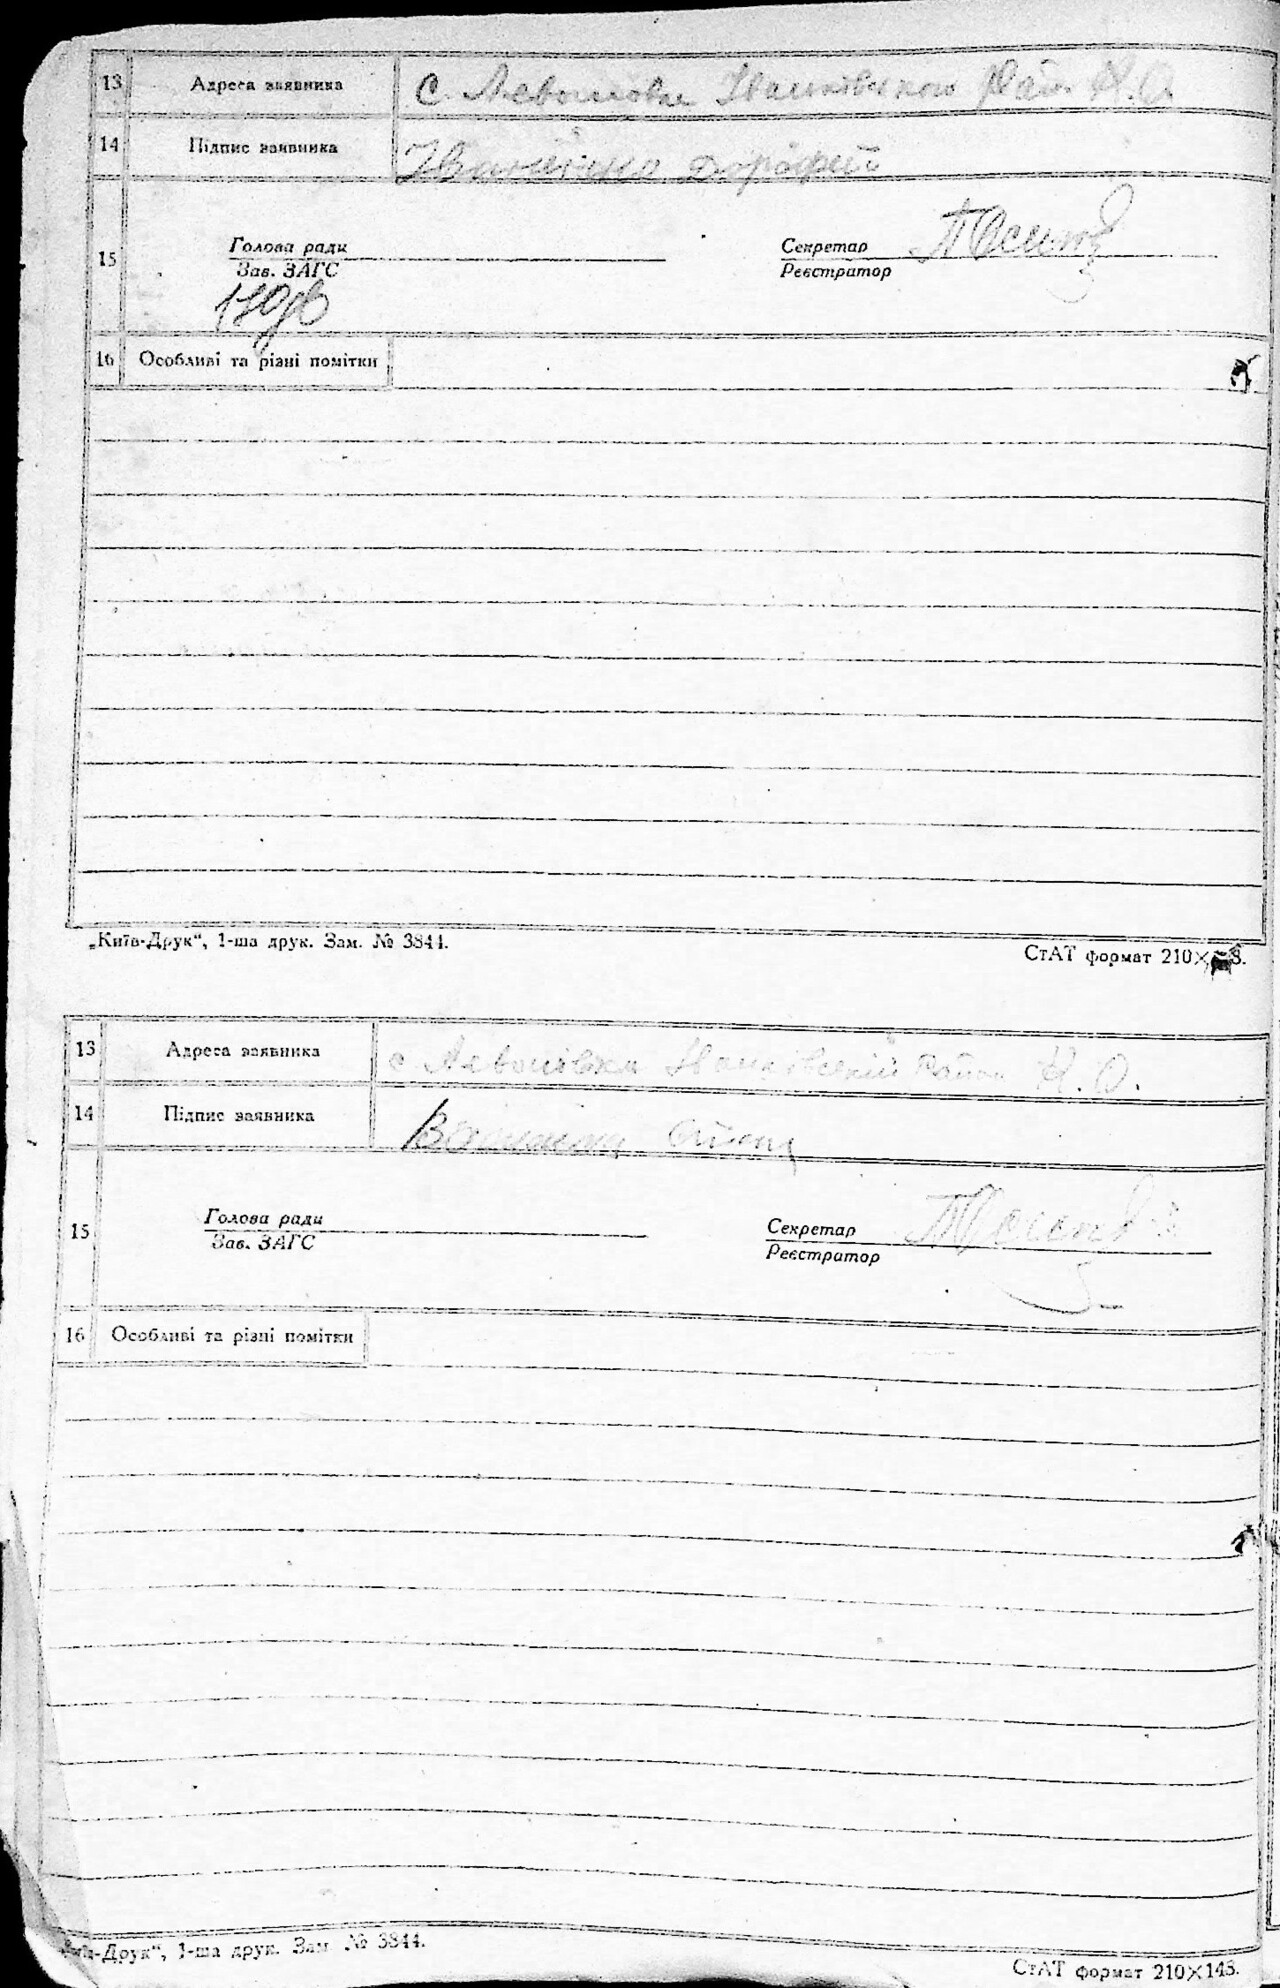 13 Адреса заявника с. Левоновка Іванківського Рай. К.О.
14 Підпис заявника Дорофей
Голова ради Секретар
15
Зав. ЗАГС Реєстратор
16 Особливі та різні помітки
„Київ-Друк“, 1-ша друк. Зам. № 3844.
СтАТ формат 210×
13 Адреса заявника с Іванківський район К.О.
14 Підпис заявника
Голова ради Секретар
15
Зав. ЗАГС Реєстратор
16 Особливі та різні помітки
-Друк“, 1-ша друк. Зам № 3844.
СтАТ формат 210×148.